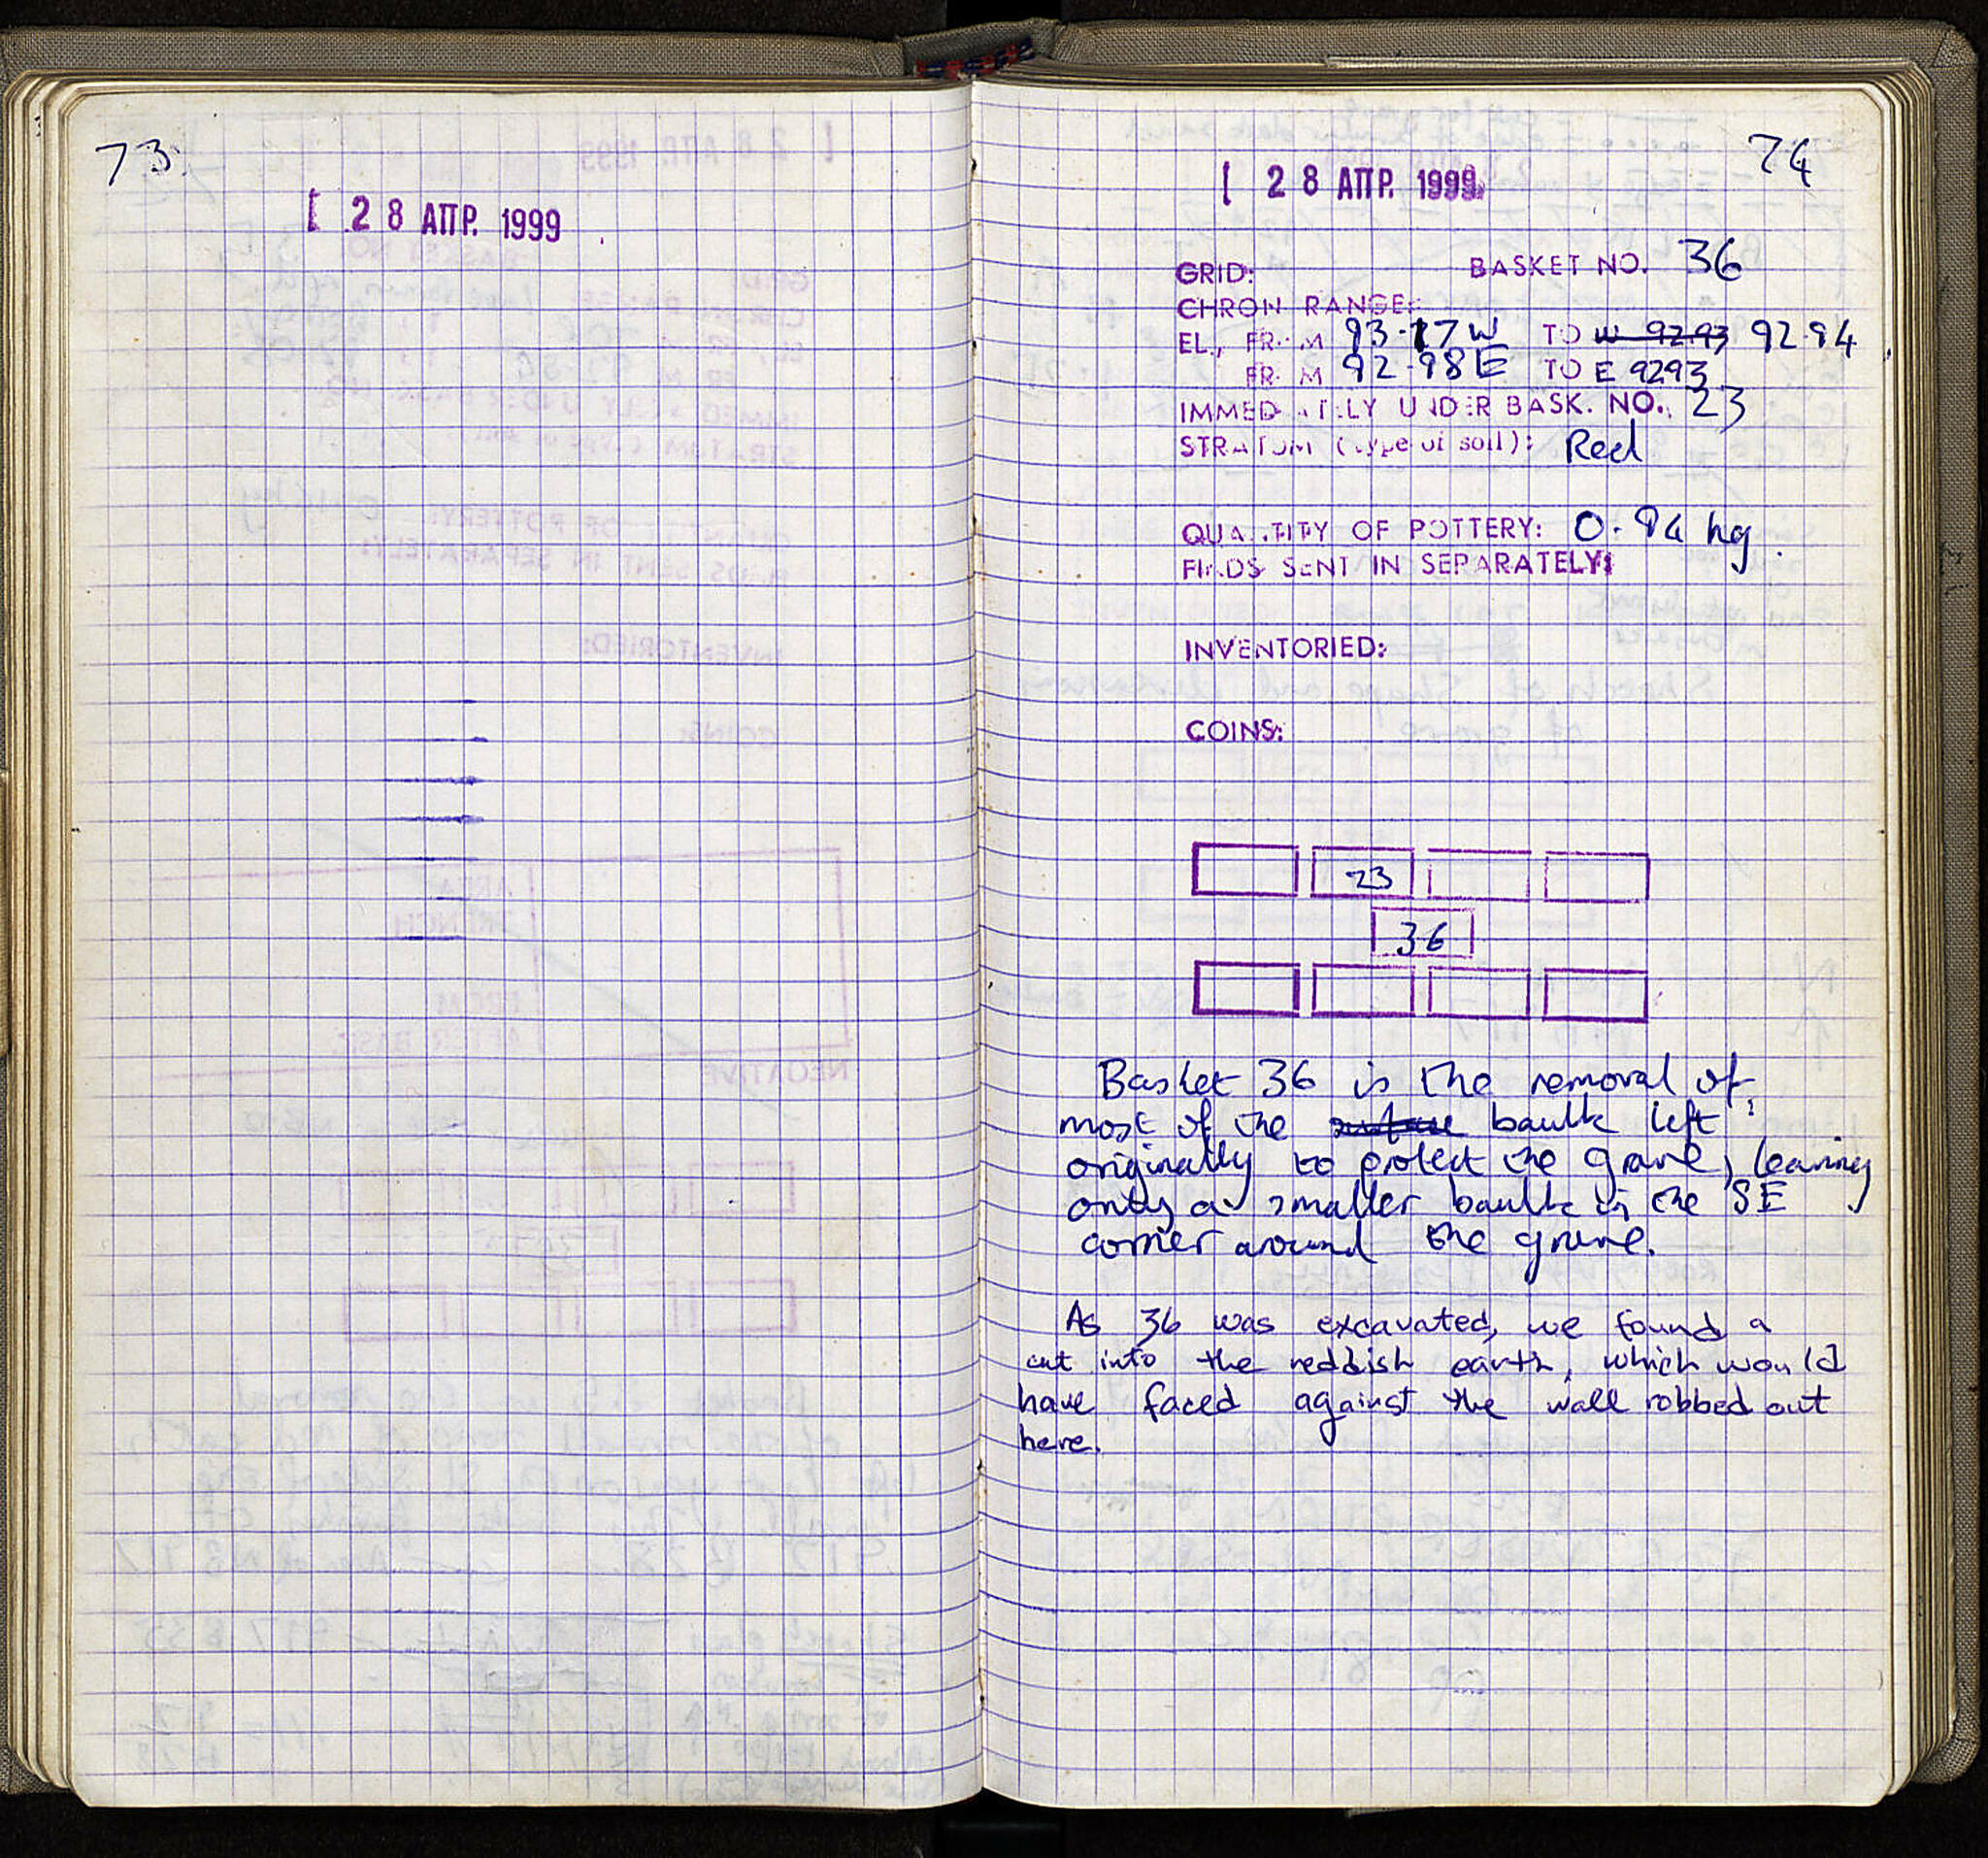 73
[ 28 ΑΠΡ. 1999
74
[ 28 ΑΠΡ. 1999
GRID: BASKET NO. 36
CHRON RANGE:
EL., FROM 93.17W TO W 92.93 92.94
FROM 92.98E TO E 9293
IMMEDIATELY UNDER BASK. NO. 23
STRATUM (type of soil): Red
QUANTITY OF POTTERY: 0.94 kg.
FINDS SENT IN SEPARATELY:
INVENTORIED:
COINS:
23
36
Basket 36 is the removal of
most of the surface baulk left
originally to protect the grave, leaving
only a smaller baulk in the SE
corner around the grave.
As 36 was excavated, we found a
cut into the reddish earth, which would
have faced against the wall robbed out
here.